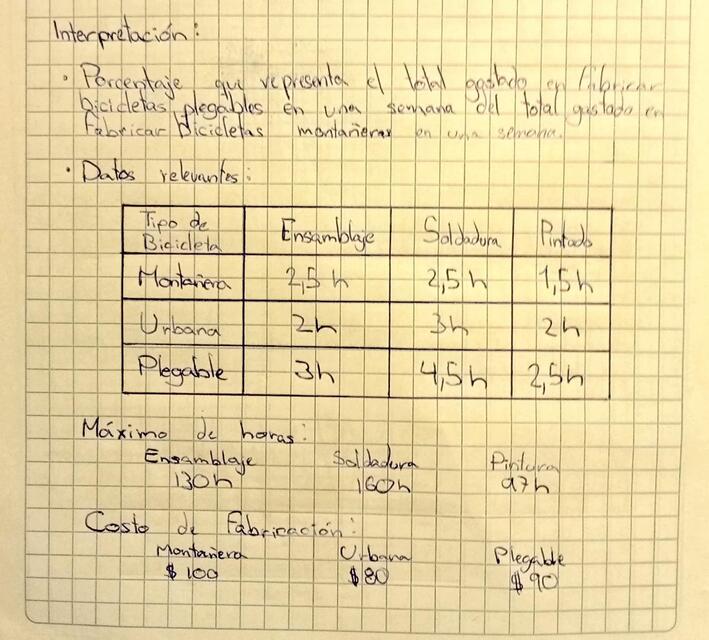 Interpretación:
• Porcentaje que representa el total gastado en fabricar
bicicletas plegables en una semana del total gastado en
fabricar bicicletas montañeras en una semana.
• Datos relevantes:
Tipo de
Bicicleta Ensamblaje Soldadura Pintado
Montañera 2,5 h 2,5 h 1,5 h
Urbana 2h 3h 2h
Plegable 3h 4,5 h 2,5 h
Máximo de horas:
Ensamblaje Soldadura Pintura
130h 160h 97h
Costo de Fabricación:
Montañera Urbana Plegable
$ 100 $80 $90